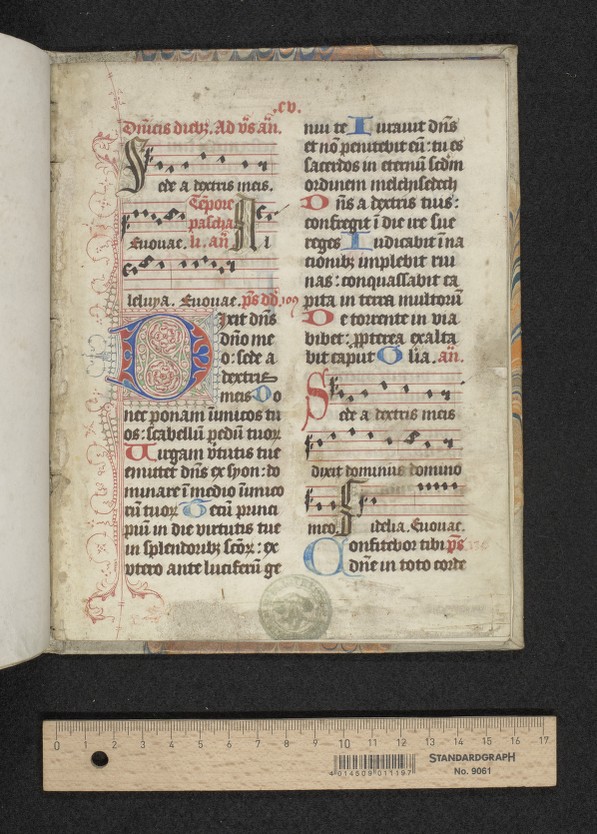 .cv.
Dn̄icis diebꝫ. Ad v̄s an̄.
Sede a dextris meis.
Tēpore
pascha
Euouae. li. an̄ Al
leluya. Euouae. ps dd. 109
Dixit dn̄s
dn̄o me
o: sede a
dextris
meis Do
nec ponam īimicos tu
os: scabellū pedū tuoꝝ
Uirgam v̄tutis tue
emittet dn̄s ex syon: do
minare ī medio īimico
rū tuoꝝ Tecū princi
piū in die virtutis tue
in splendoribꝫ scōꝝ: ex
vtero ante luciferū ge
nui te Iurauit dn̄s
et nō penitebit eū: tu es
sacerdos in eternū scd̄m
ordinem melchisedech
Dn̄s a dextris tuis:
confregit ī die ire sue
reges Iudicabit ī na
cionibꝫ implebit rui
nas: conquassabit ca
pita in terra multorū
De torrente in via
bibet: ꝓpterea exalta
bit caput Glia. an̄.
Sede a dextris meis
dixit dominus domino
meo. Fidelia. Euouae.
Confitebor tibi ps
dn̄e in toto corde
0 1 2 3 4 5 6 7 8 9 10 11 12 13 14 15 16 17
4 014509 011197
STANDARDGRAPH
No. 9061